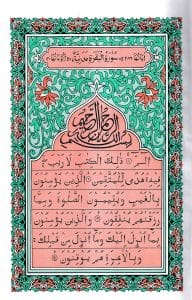 سُوْرَةُ الْبَقَرَةِ مَدَنِيَّةٌ
بِسْمِ اللهِ الرَّحْمٰنِ الرَّحِيْمِ
الٓمّٓ ۚ ذٰلِكَ الْكِتٰبُ لَا رَيْبَ ۛ
فِيْهِ ۛ هُدًى لِّلْمُتَّقِيْنَ ۙ الَّذِيْنَ يُؤْمِنُوْنَ
بِالْغَيْبِ وَيُقِيْمُوْنَ الصَّلٰوةَ وَمِمَّا
رَزَقْنٰهُمْ يُنْفِقُوْنَ ۙ وَالَّذِيْنَ يُؤْمِنُوْنَ
بِمَآ اُنْزِلَ اِلَيْكَ وَمَآ اُنْزِلَ مِنْ قَبْلِكَ ۚ
وَبِالْاٰخِرَةِ هُمْ يُوْقِنُوْنَ